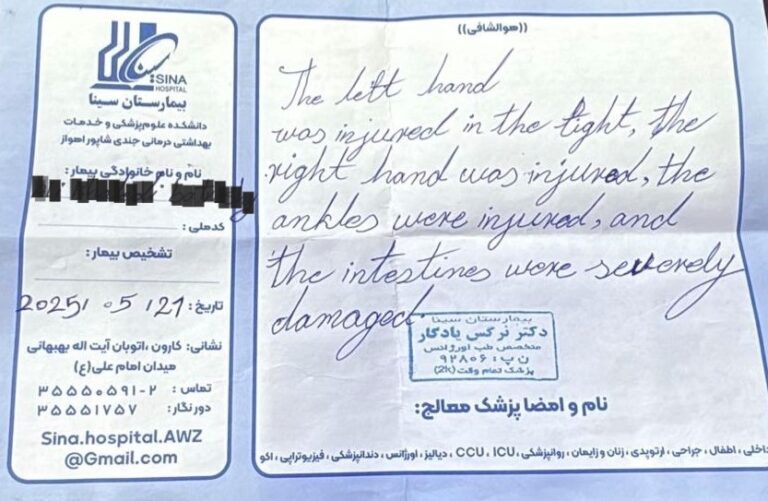 SINA
HOSPITAL
بیمارستان سینا
دانشکده علوم پزشکی و خدمات
بهداشتی درمانی جندی شاپور اهواز
نام و نام خانوادگی بیمار:
کد ملی:
تشخیص بیمار:
تاریخ: 2025/05/21
نشانی: کارون ،اتوبان آیت اله بهبهانی
میدان امام علی(ع)
تماس : ۳۵۵۵۰۵۹۱-۲
دورنگار: ۳۵۵۵۱۷۵۷
Sina.hospital.AWZ
@Gmail.com
((هوالشافی))
The left hand
was injured in the fight, the
right hand was injured, the
ankles were injured, and
the intestines were severely
damaged.
بیمارستان سینا
دکتر نرگس یادگار
متخصص طب اورژانس
ن پ: ۹۲۸۰۶
پزشک تمام وقت (2k)
نام و امضا پزشک معالج:
داخلی ، اطفال ، جراحی ، ارتوپدی ، زنان و زایمان ، روانپزشکی ، CCU ، ICU ، دیالیز ، اورژانس ، دندانپزشکی ، فیزیوتراپی ، اکو